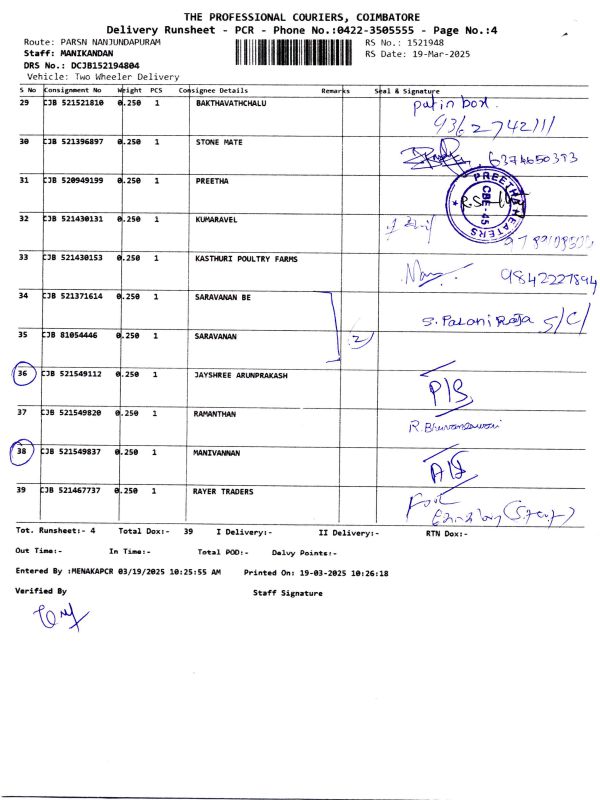 THE PROFESSIONAL COURIERS, COIMBATORE
Delivery Runsheet - PCR - Phone No.:0422-3505555 - Page No.:4
Route: PARSN NANJUNDAPURAM
RS No.: 1521948
Staff: MANIKANDAN
RS Date: 19-Mar-2025
DRS No.: DCJB152194804
Vehicle: Two Wheeler Delivery
S No Consignment No Weight PCS Consignee Details Remarks Seal & Signature
29 CJB 521521810 0.250 1 BAKTHAVATHCHALU
9362742111
30 CJB 521396897 0.250 1 STONE MATE
6374650393
31 CJB 520949199 0.250 1 PREETHA
PREETHA HEATERS CBE-45
32 CJB 521430131 0.250 1 KUMARAVEL
33 CJB 521430153 0.250 1 KASTHURI POULTRY FARMS
9842227894
34 CJB 521371614 0.250 1 SARAVANAN BE
S. Palani Raja S/C/
35 CJB 81054446 0.250 1 SARAVANAN 2
36 CJB 521549112 0.250 1 JAYSHREE ARUNPRAKASH
37 CJB 521549820 0.250 1 RAMANTHAN
R. Bhuvaneswari
38 CJB 521549837 0.250 1 MANIVANNAN
39 CJB 521467737 0.250 1 RAYER TRADERS
Tot. Runsheet:- 4 Total Dox:- 39 I Delivery:- II Delivery:- RTN Dox:-
Out Time:- In Time:- Total POD:- Delvy Points:-
Entered By :MENAKAPCR 03/19/2025 10:25:55 AM Printed On: 19-03-2025 10:26:18
Verified By Staff Signature